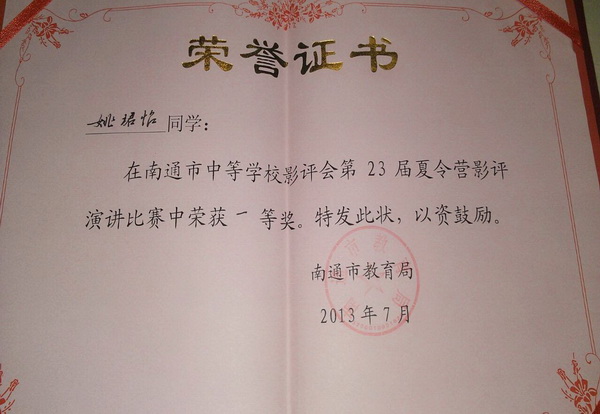 荣誉证书
姚珺怡同学：
在南通市中等学校影评会第 23 届夏令营影评
演讲比赛中荣获 一 等奖。特发此状，以资鼓励。
南通市教育局
2013 年 7 月